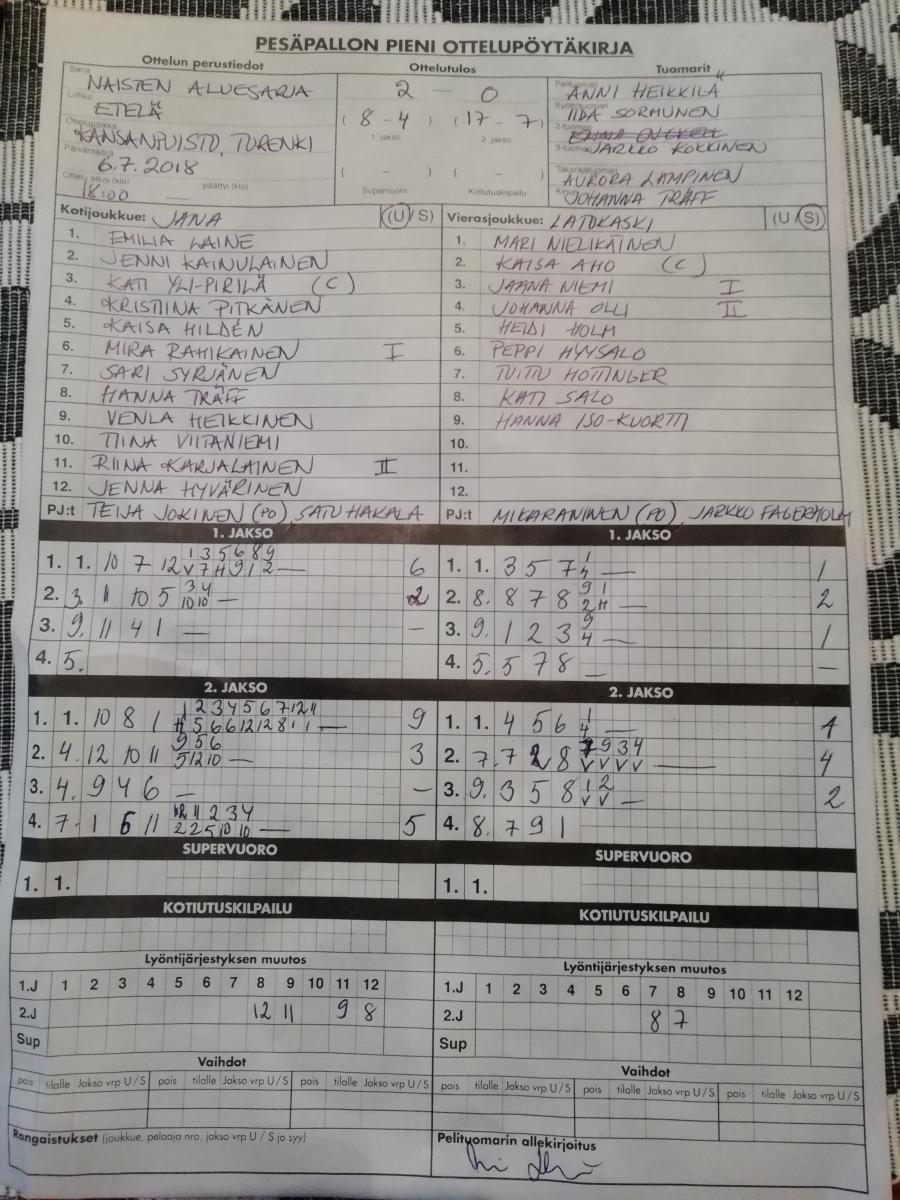 PESÄPALLON PIENI OTTELUPÖYTÄKIRJA
Ottelun perustiedot Ottelutulos Tuomarit
Sarja NAISTEN ALUESARJA
Lohko ETELÄ
Ottelupaikka KANSANPUISTO, TURENKI
Päivämäärä 6.7.2018
Ottelu alkoi (klo) 18:00 päättyi (klo)
2 - 0
(8-4) (17-7)
1 jakso 2 jakso
( - ) ( - )
Supervuoro Kotiutuskilpailu
Pelituomari ANNI HEIKKILÄ
Syöttötuomari IIDA SORMUNEN
2-tuomari
3-tuomari JARKKO KOKKINEN
Takarajatuomari AURORA LAMPINEN
Kirjuri JOHANNA TRÄFF
Kotijoukkue: JANA (U/S)
1. EMILIA LAINE
2. JENNI KAINULAINEN
3. KATI YLI-PIRILÄ (C)
4. KRISTIINA PITKÄNEN
5. KAISA HILDÉN
6. MIRA RAHIKAINEN I
7. SARI SYRJÄNEN
8. HANNA TRÄFF
9. VENLA HEIKKINEN
10. TIINA VIITANIEMI
11. RIINA KARJALAINEN II
12. JENNA HYVÄRINEN
PJ:t TEIJA JOKINEN (PO), SATU HAKALA
Vierasjoukkue: LATOKASKI (U/S)
1. MARI NIELIKÄINEN
2. KAISA AHO (C)
3. JAANA NIEMI I
4. JOHANNA OLLI II
5. HEIDI HOLM
6. PEPPI HYYSALO
7. TUITU HOTTINGER
8. KATI SALO
9. HANNA ISO-KUORTTI
10.
11.
12.
PJ:t MIKA RANINEN (PO), JARKKO FAGERHOLM
1. JAKSO
1 3 5 6 8 9
1. 1. 10 7 12 V 7 H 9 1 2 — 6
3 4
2. 3. 11 10 5 10 10 — 2
3. 9. 11 4 1 — —
4. 5.
1. JAKSO
1
1. 1. 3 5 7 4 — 1
9 1
2. 8. 8 7 8 2 H — 2
9
3. 9. 1 2 3 4 — 1
4. 5. 5 7 8 — —
2. JAKSO
1 2 3 4 5 6 7 12 11
1. 1. 10 8 1 H 5 6 6 12 12 8 1 1 — 9
9 5 6
2. 4. 12 10 11 5 12 10 — 3
3. 4. 9 4 6 — —
12 11 2 3 4
4. 7. 1 6 11 2 2 5 10 10 — 5
2. JAKSO
1
1. 1. 4 5 6 4 — 1
9 3 4
2. 7. 7 2 8 V V V V — 4
1 2
3. 9. 3 5 8 V V — 2
4. 8. 7 9 1
SUPERVUORO
1. 1.
SUPERVUORO
1. 1.
KOTIUTUSKILPAILU
KOTIUTUSKILPAILU
Lyöntijärjestyksen muutos
1.J 1 2 3 4 5 6 7 8 9 10 11 12
2.J 12 11 9 8
Sup
Lyöntijärjestyksen muutos
1.J 1 2 3 4 5 6 7 8 9 10 11 12
2.J 8 7
Sup
Vaihdot
pois tilalle Jakso vrp U/S pois tilalle Jakso vrp U/S pois tilalle Jakso vrp U/S
Vaihdot
pois tilalle Jakso vrp U/S pois tilalle Jakso vrp U/S pois tilalle Jakso vrp U/S
Rangaistukset (joukkue, pelaaja nro, jakso vrp U / S ja syy)
Pelituomarin allekirjoitus